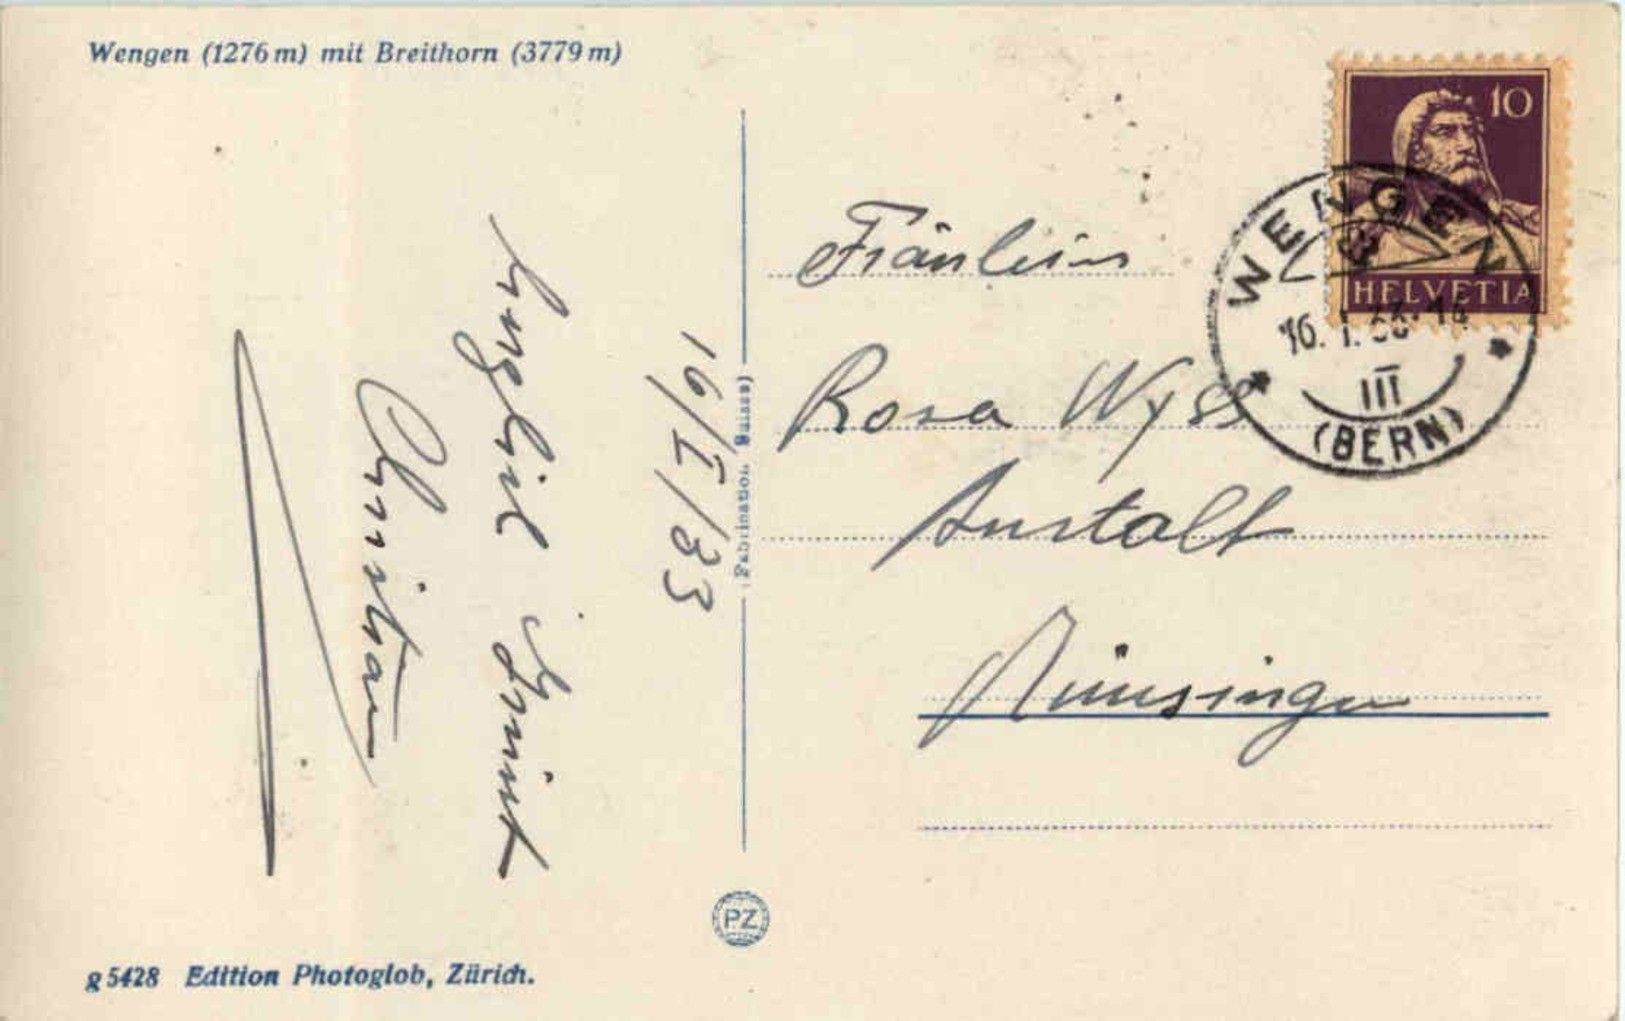 Wengen (1276 m) mit Breithorn (3779 m)
16/I/33
Christian
(Fabrication Suisse)
10
HELVETIA
WENGEN
16. I. 33
III
(BERN)
Fräulein
Rosa Wyss
Anstalt
Münsingen
PZ
g 5428 Edition Photoglob, Zürich.